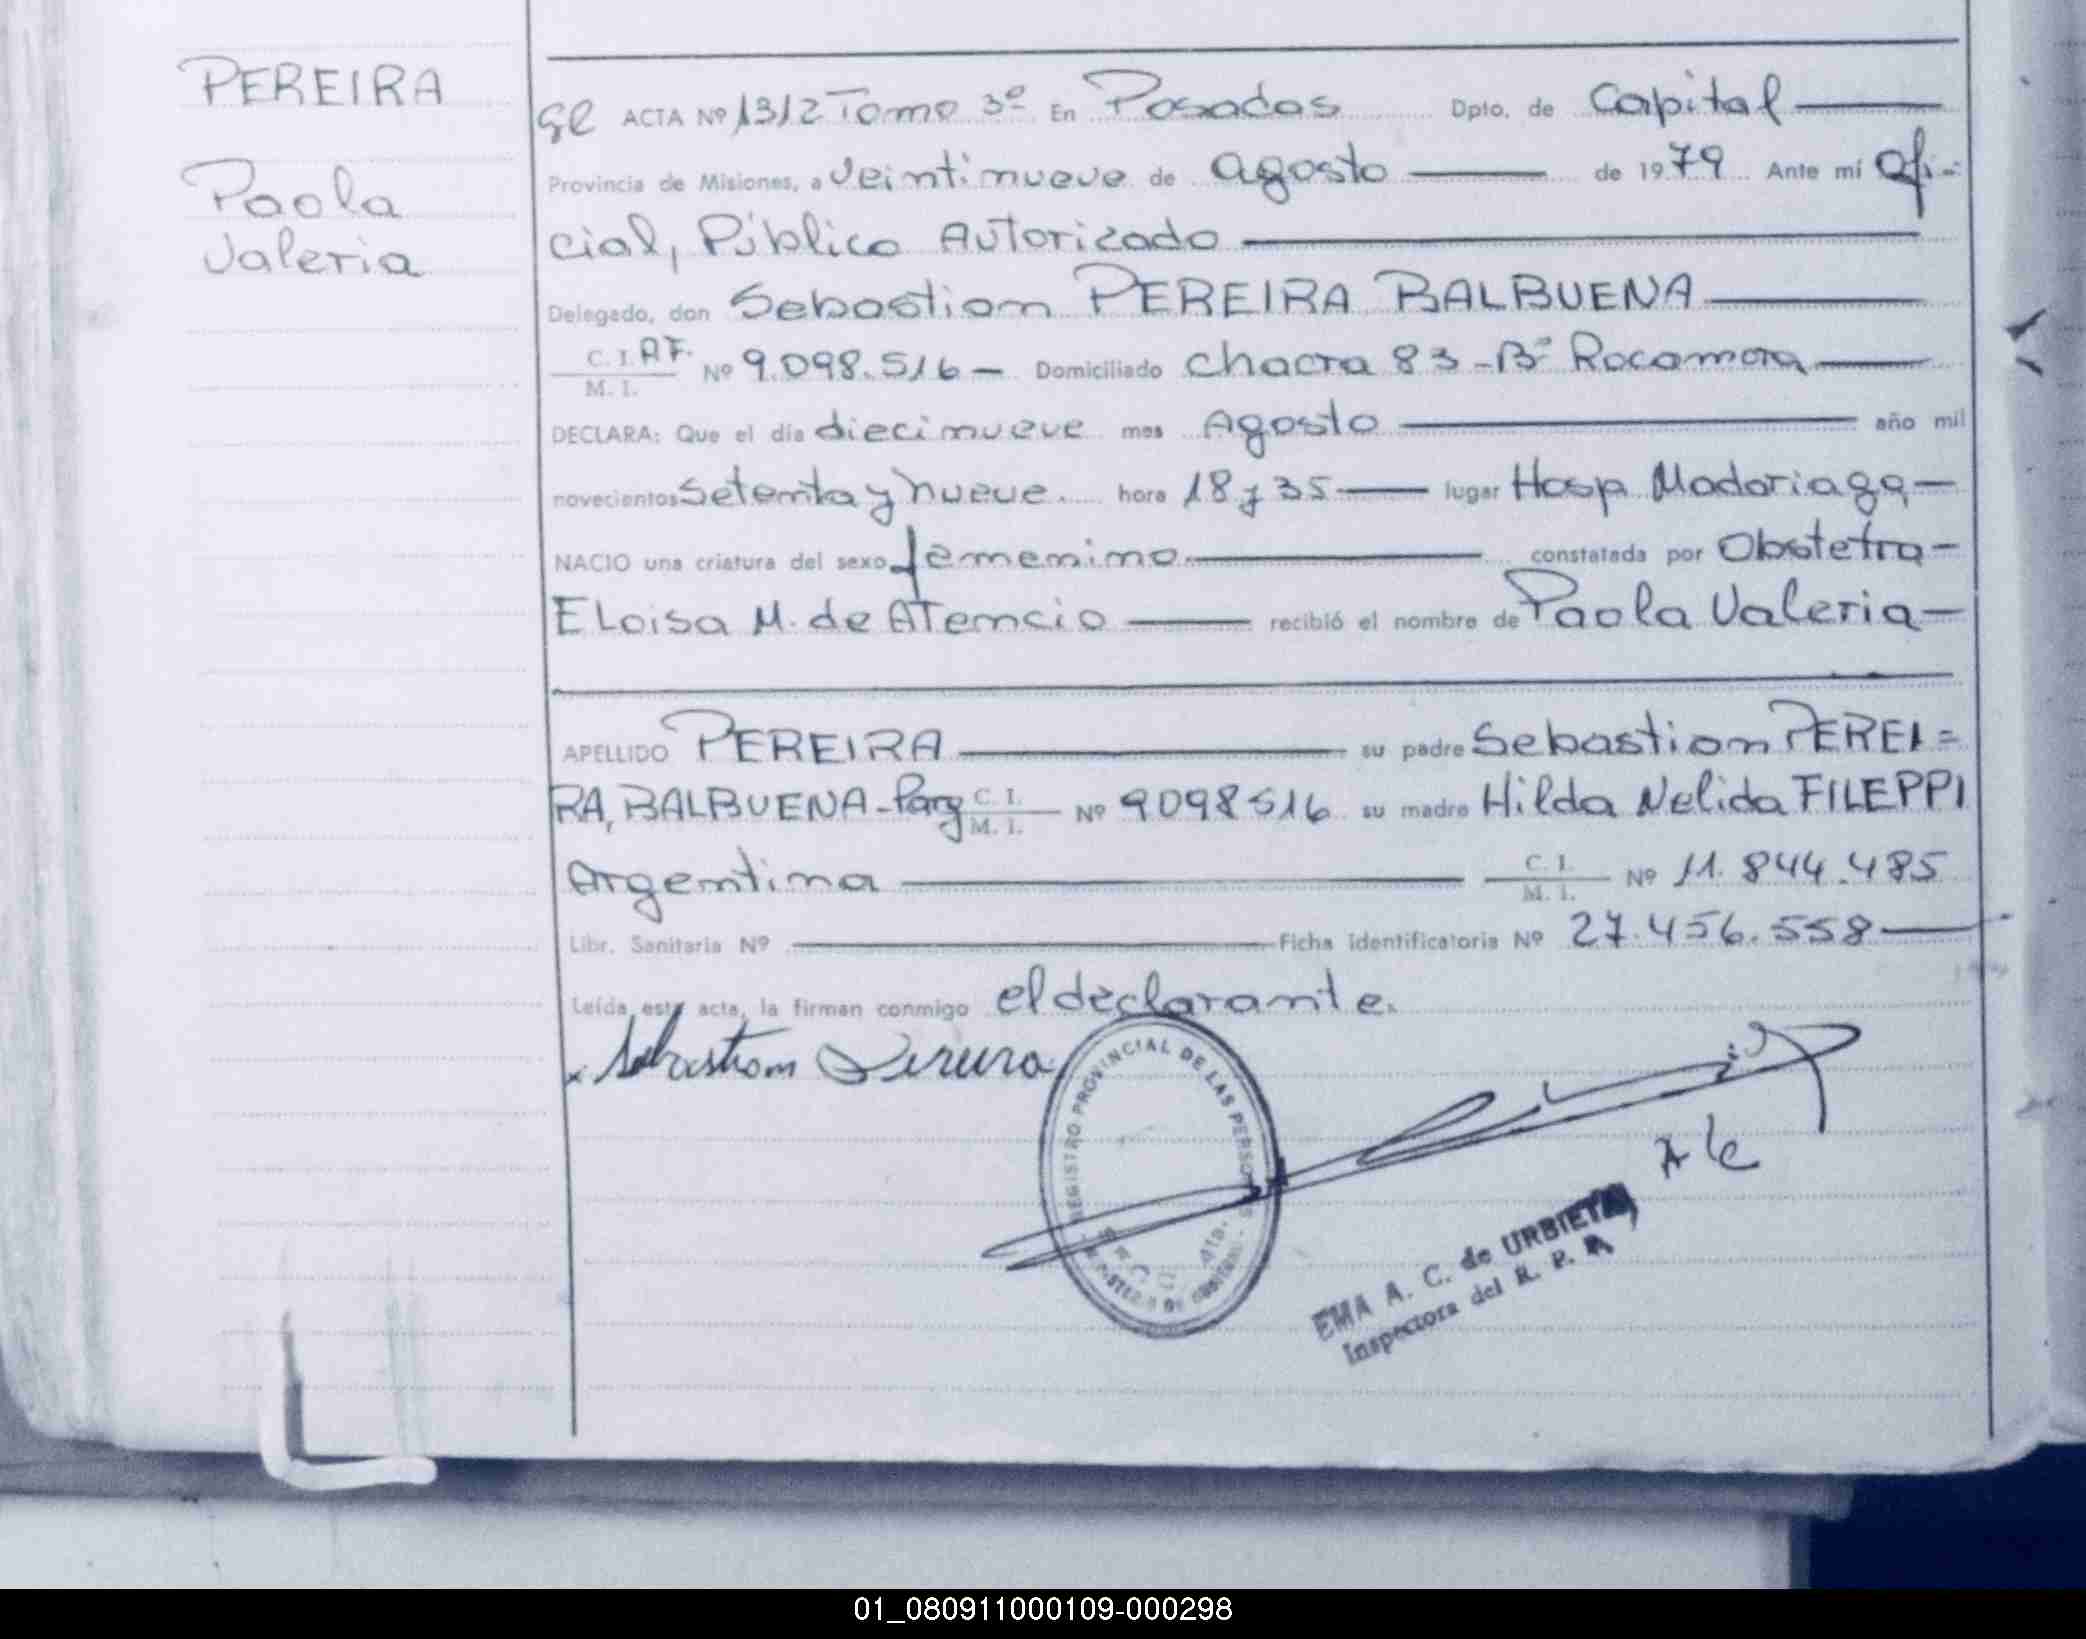 PEREIRA
Paola
Valeria
ACTA Nº 1312 Tomo 3º En Posadas Dpto. de Capital
Provincia de Misiones, a veintinueve de agosto de 1979 Ante mí Ofi-
cial, Público Autorizado
Delegado, don Sebastian PEREIRA BALBUENA
C. I. A F.
M. I.
Nº 9.098.516 - Domiciliado Chacra 83 - Bº Rocamora
DECLARA: Que el día diecinueve mes Agosto año mil
novecientos Setenta y nueve. hora 18 y 35 lugar Hosp Madariaga -
NACIO una criatura del sexo femenino constatada por Obstetra -
Eloisa M. de Atencio recibió el nombre de Paola Valeria -
APELLIDO PEREIRA su padre Sebastian PEREI=
RA, BALBUENA - Parg C. I. / M. I. Nº 9098516 su madre Hilda Nelida FILEPPI
Argentina C. I. / M. I. Nº 11.844.485
Libr. Sanitaria Nº Ficha Identificatoria Nº 27.456.558
Leída esta acta, la firman conmigo el declarante.
x Sebastian Pereira
REGISTRO PROVINCIAL DE LAS PERSONAS
MINISTERIO DE GOBIERNO
EMA A. C. de URBIETA
Inspectora del R. P. P.
01_080911000109-000298